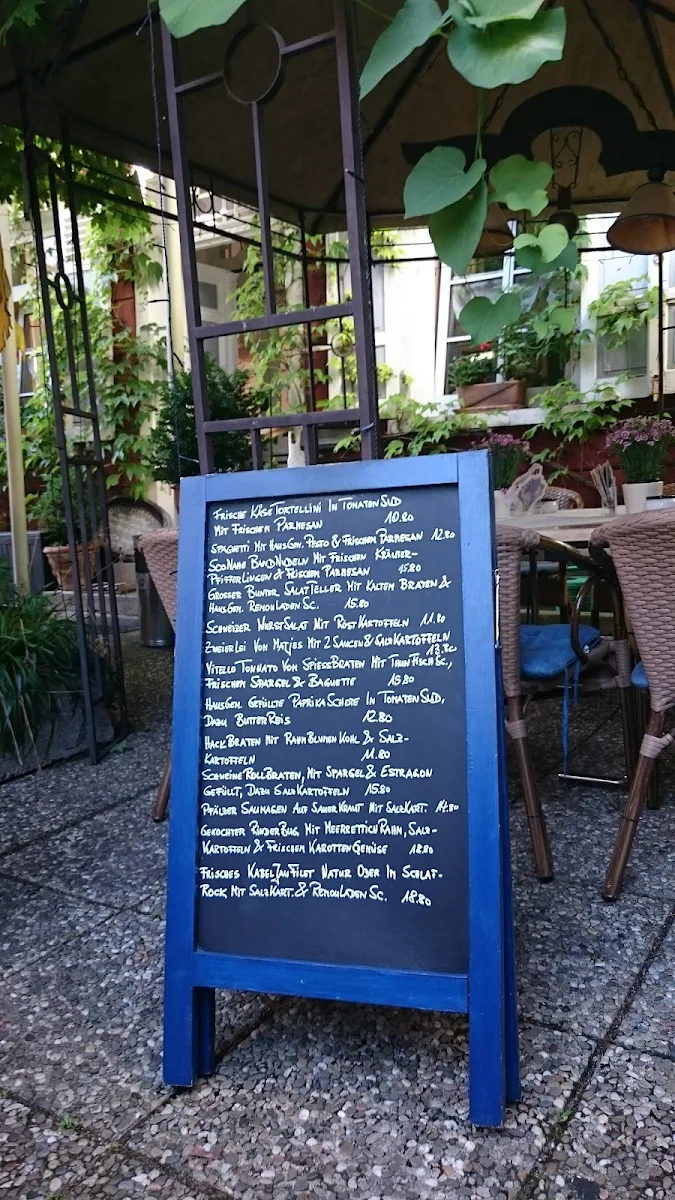 Frische Käse Tortellini In Tomaten Sud
Mit Frischem Parmesan 10.80
Spaghetti Mit Hausgem. Pesto & Frischem Parmesan 12.80
Bandnudeln Mit Frischen Kräuter-
Pfifferlingen & Frischem Parmesan 15.80
Grosser Bunter Salatteller Mit Kaltem Braten &
Hausgem. Remouladen Sc. 15.80
Schweizer Wurstsalat Mit Röstkartoffeln 11.80
Zweierlei Vom Matjes Mit 2 Saucen & Salzkartoffeln
13.80
Vitello Tonnato Vom Spiessbraten Mit Thunfisch Sc.,
Frischem Spargel & Baguette 15.80
Hausgem. Gefüllte Paprika Schote In Tomaten Sud,
Dazu Butter Reis 12.80
Hackbraten Mit Rahm Blumenkohl & Salz-
Kartoffeln 11.80
Schweine Rollbraten, Mit Spargel & Estragon
Gefüllt, Dazu Salzkartoffeln 15.80
Pfälzer Saumagen Auf Sauerkraut Mit Salzkart. 14.80
Gekochter Rinder Bug, Mit Meerrettich Rahm, Salz-
Kartoffeln & Frischem Karotten Gemüse 18.80
Frisches Kabeljau Filet Natur Oder Im Schlaf-
Rock, Mit Salzkart. & Remouladen Sc. 18.80